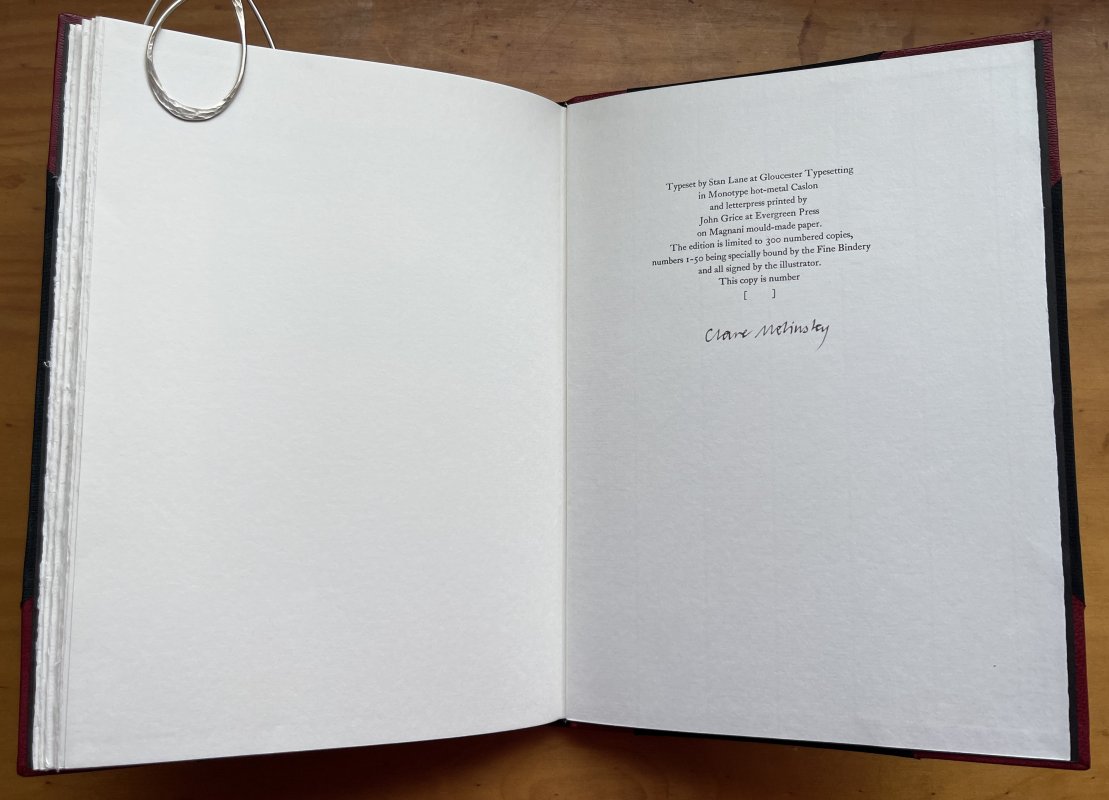 Typeset by Stan Lane at Gloucester Typesetting
in Monotype hot-metal Caslon
and letterpress printed by
John Grice at Evergreen Press
on Magnani mould-made paper.
The edition is limited to 300 numbered copies,
numbers 1-50 being specially bound by the Fine Bindery
and all signed by the illustrator.
This copy is number
[ ]
Clare Melinsky